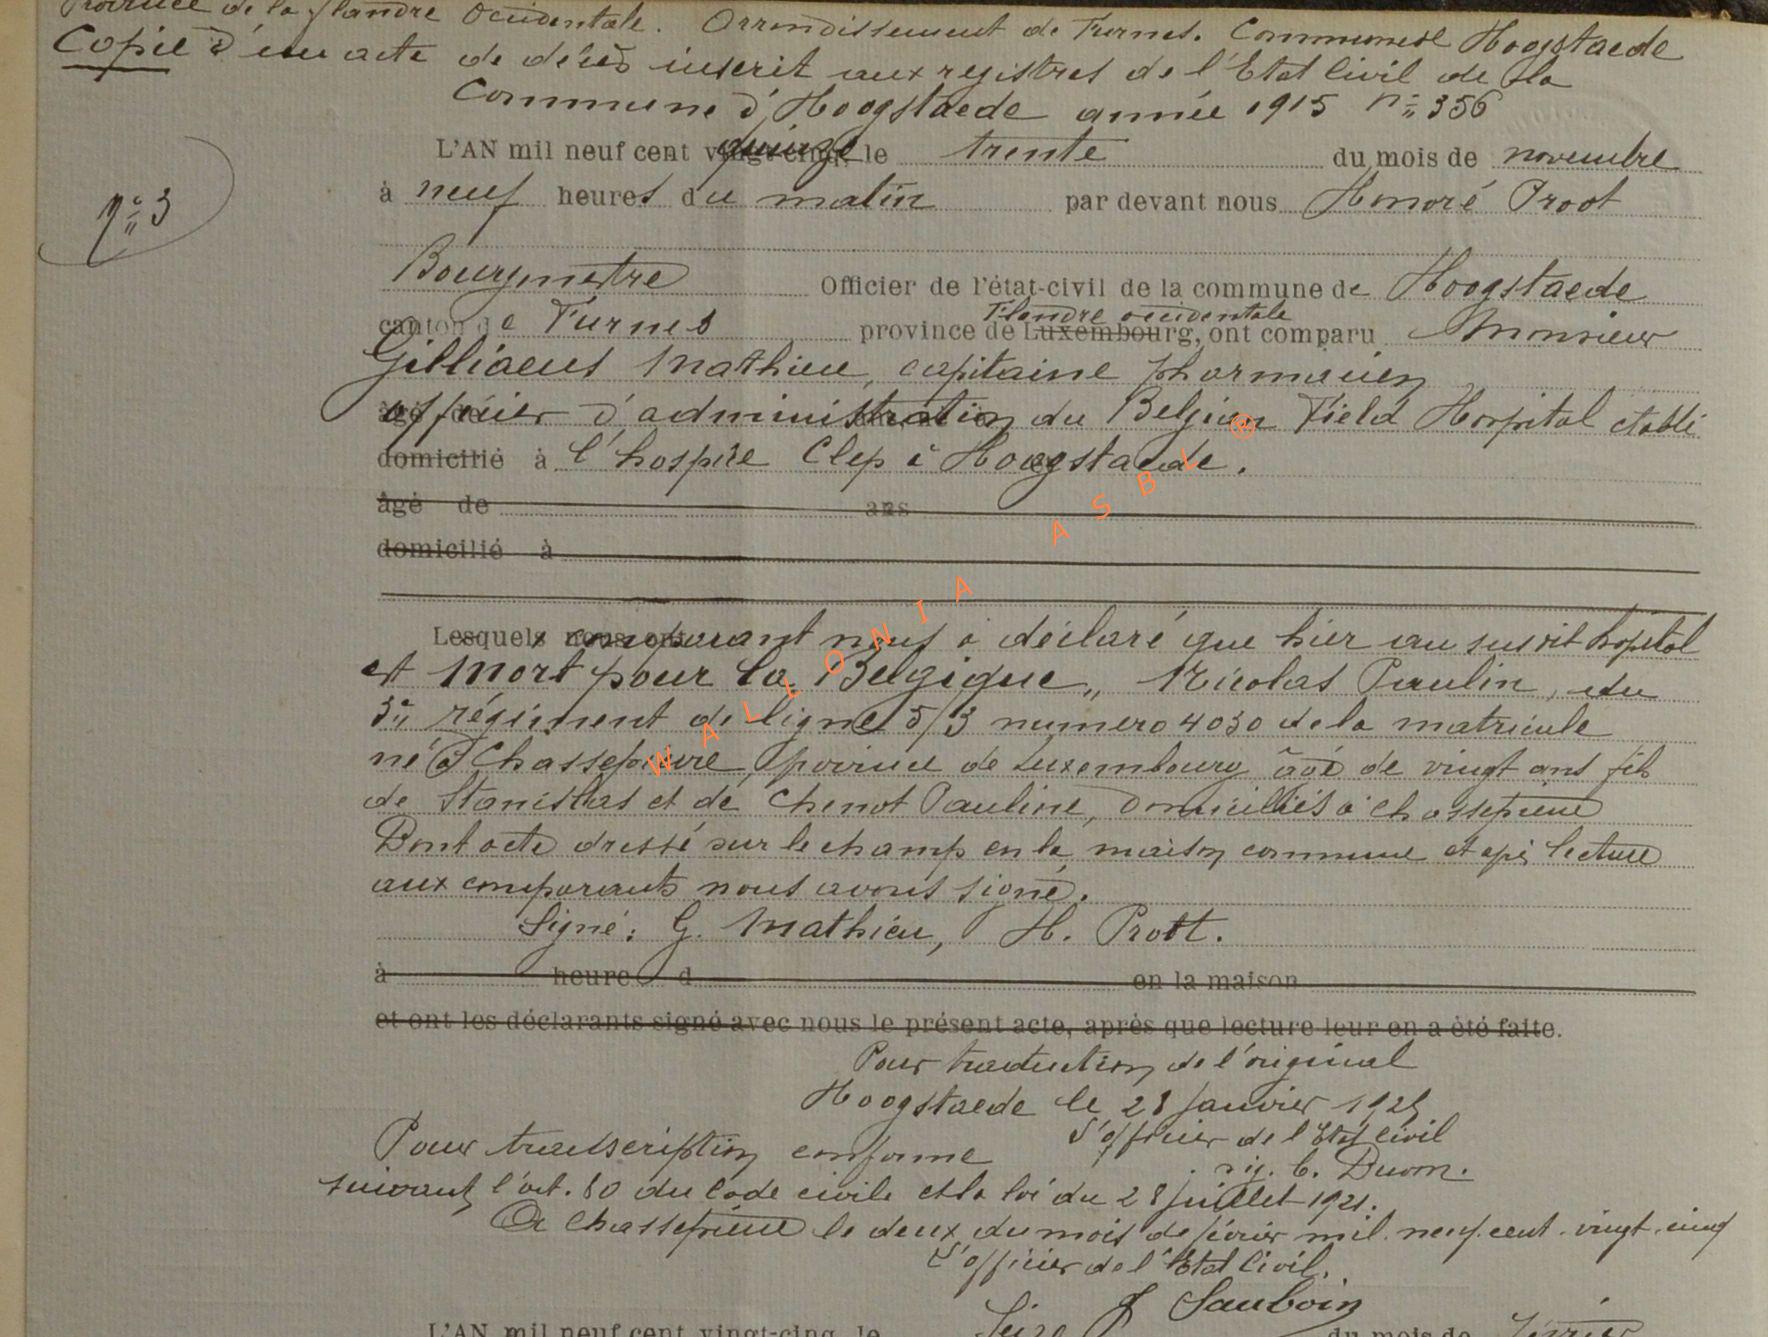 Province de la Flandre Occidentale. Arrondissement de Furnes. Commune de Hoogstaede
Copie d'un acte de décès inscrit aux registres de l'Etat Civil de la
Commune d'Hoogstaede année 1915 n° 356
n° 3
L'AN mil neuf cent vingt-cinq, quinze le trente du mois de novembre
à neuf heures du matin par devant nous Honoré Proot
Bourgmestre Officier de l'état-civil de la commune de Hoogstaede
canton de Furnes province de Luxembourg, Flandre occidentale ont comparu Monsieur
Gilliaeus Mathieu, capitaine pharmacien
âgé de officier d'administration du Belgian Field Hospital établi
domicilié à l'hospice Clep à Hoogstaede.
âgé de ans
domicilié à
Lesquels nous ont comparant neuf a déclaré que hier au susdit hopital
est mort pour la Belgique „ Nicolas Paulin, du
3e régiment de ligne 5/3 numero 4030 de la matricule
né à Chassepierre, province de Luxembourg âgé de vingt ans fils
de Stanislas et de Chenot Pauline, domiciliés à Chassepierre
Dont acte dressé sur le champ en la maison commune et après lecture
aux comparants nous avons signé.
Signé: G. Mathieu, H. Prott.
à heure d en la maison
et ont les déclarants signé avec nous le présent acte, après que lecture leur en a été faite.
Pour traduction de l'original
Hoogstaede le 28 Janvier 1925
L'officier de l'Etat Civil
sig. C.
Pour transcription conforme
suivant l'art. 80 du Code civile et la loi du 28 juillet 1921.
A Chassepierre le deux du mois de février mil neuf cent vingt cinq
L'officier de l'Etat Civil.
J Sauboin
L'AN mil neuf cent vingt-cinq, le Seize du mois de février
WALLONIA ASBL ®